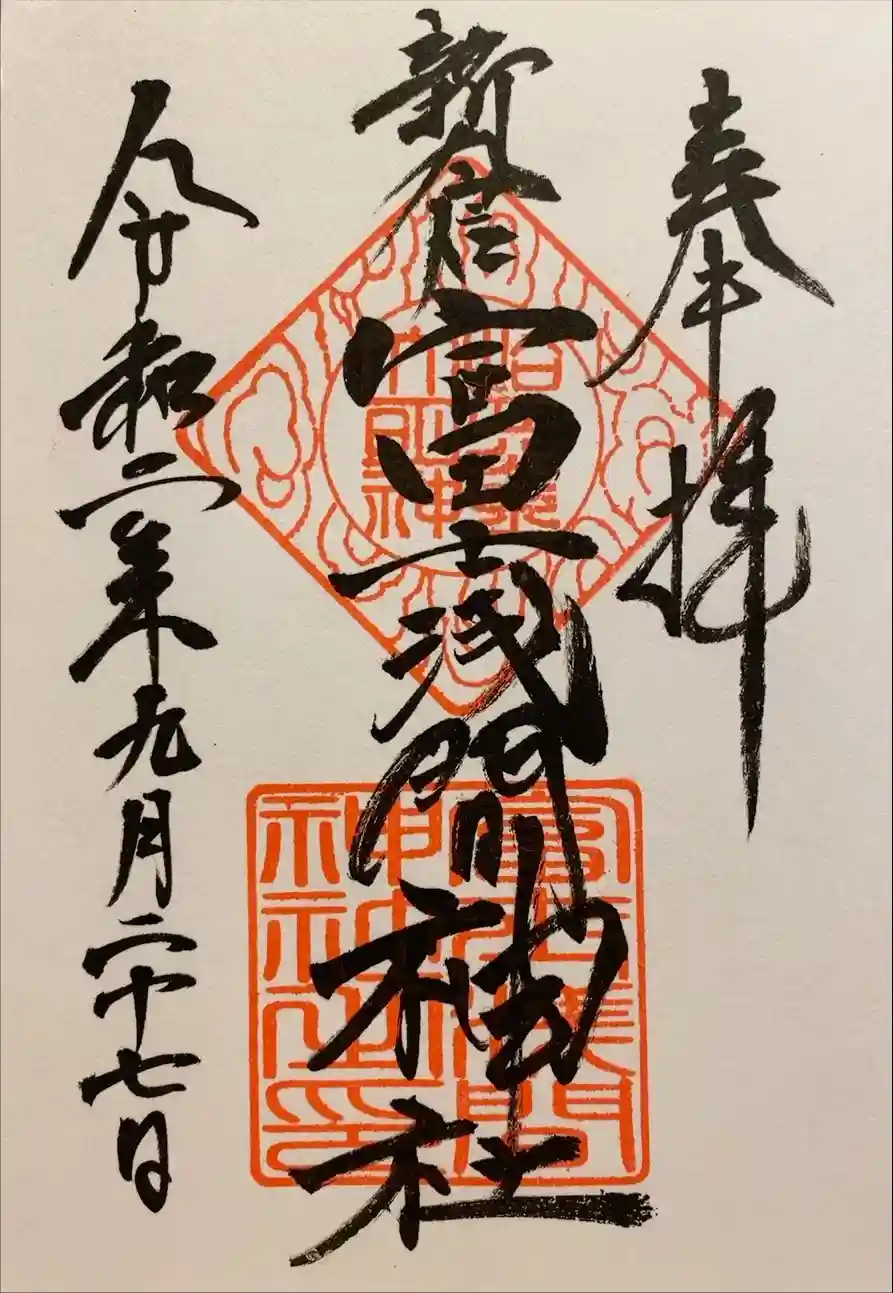 奉拝
新倉富士浅間神社
令和二年九月二十七日